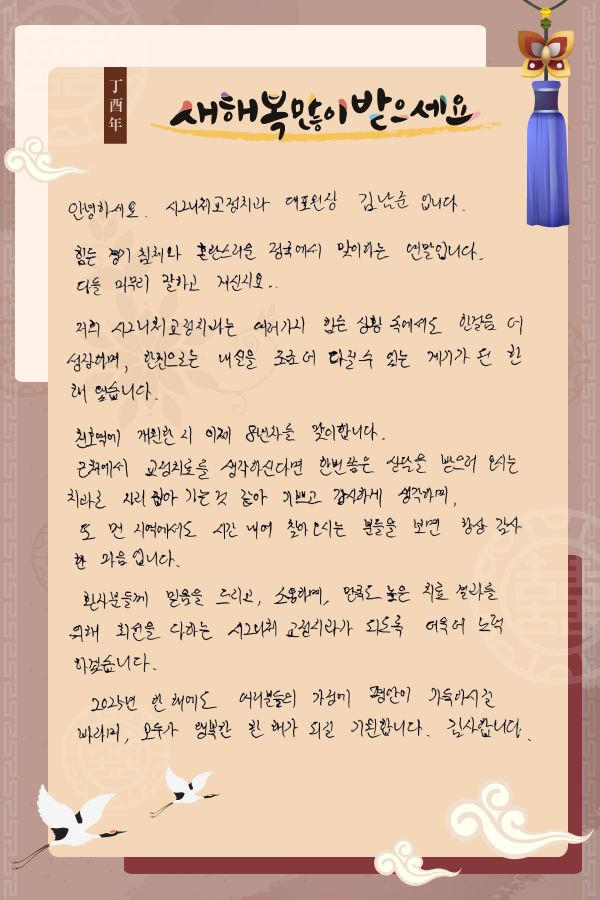 丁酉年
새해복많이받으세요
안녕하세요. 시그니처교정치과 대표원장 김남준 입니다.
힘든 경기 침체와 혼란스러운 정국에서 맞이하는 연말입니다.
다들 마무리 잘하고 계신지요..
저희 시그니처교정치과는 여러가지 힘든 상황 속에서도 한걸음 더
성장하며, 한편으로는 내실을 조금 더 다질 수 있는 계기가 된 한
해 였습니다.
천호역에 개원한 시 이제 8년차를 맞이합니다.
근처에서 교정치료를 생각하신다면 한번쯤은 상담을 받으러 오시는
치과로 자리 잡아 가는것 같아 기쁘고 감사하게 생각하며,
또 먼 지역에서도 시간 내어 찾아오시는 분들을 보면 항상 감사
한 마음 입니다.
환자분들께 믿음을 드리고, 소통하며, 만족도 높은 치료 결과를
위해 최선을 다하는 시그니처 교정치과가 되도록 더욱 더 노력
하겠습니다.
2025년 한 해에도 여러분들의 가정에 평안이 가득하시길
바라며, 모두가 행복한 한 해가 되길 기원합니다. 감사합니다.